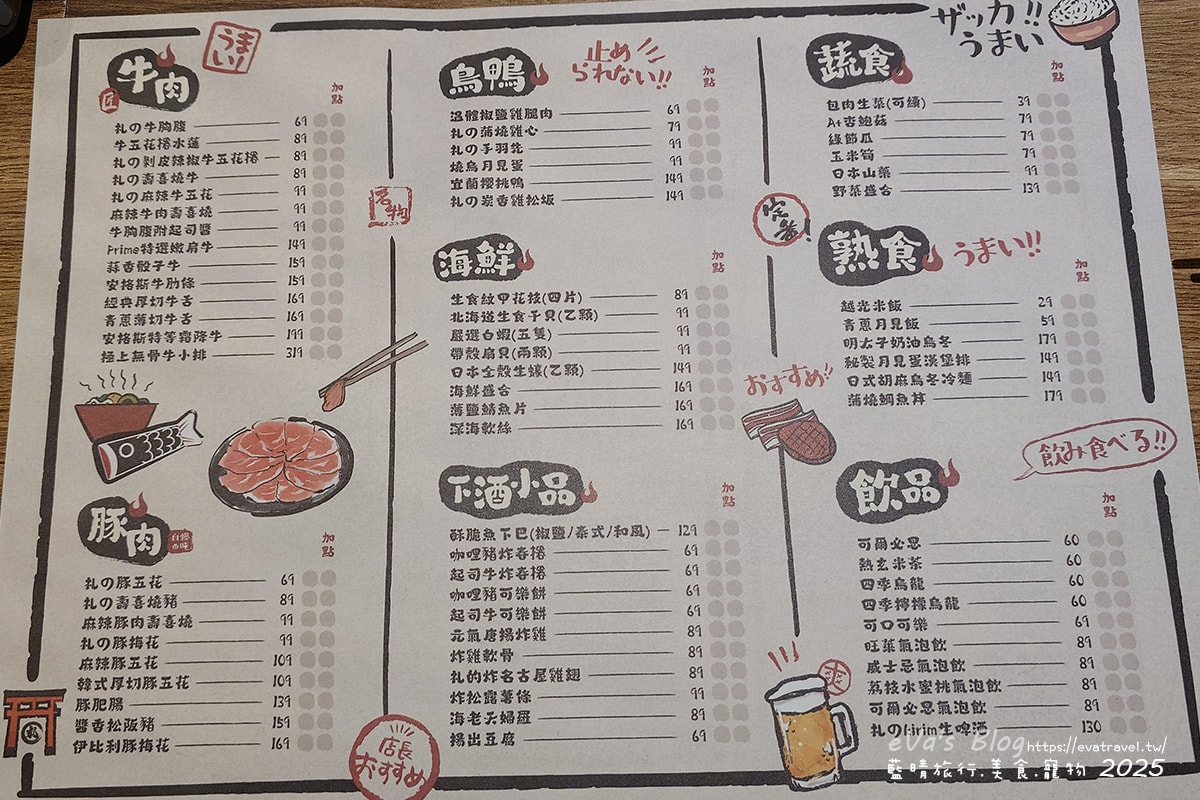 うまい!
牛肉
匠
加點
礼の牛胸腹 69
牛五花捲水蓮 89
礼の剝皮辣椒牛五花捲 89
礼の壽喜燒牛 89
礼の麻辣牛五花 99
麻辣牛肉壽喜燒 99
牛胸腹附起司醬 99
Prime特選嫩肩牛 149
蒜香骰子牛 159
安格斯牛肋條 159
經典厚切牛舌 169
青蔥薄切牛舌 169
安格斯特等霜降牛 199
極上無骨牛小排 319
豚肉
加點
礼の豚五花 69
礼の壽喜燒豬 89
麻辣豚肉壽喜燒 99
礼の豚梅花 99
麻辣豚五花 109
韓式厚切豚五花 109
豚肥腸 139
醬香松阪豬 159
伊比利豚梅花 169
名物
鳥鴨
止められない!!
加點
溫體椒鹽雞腿肉 69
礼の蒲燒雞心 79
礼の手羽先 99
燒鳥月見蛋 99
宜蘭櫻桃鴨 149
礼の炭香雞松坂 149
海鮮
加點
生食紋甲花枝(四片) 89
北海道生食干貝(乙顆) 99
嚴選白蝦(五隻) 99
帶殼扇貝(兩顆) 99
日本全殼生蠔(乙顆) 149
海鮮盛合 169
薄鹽鯖魚片 169
深海軟絲 169
下酒小品
加點
酥脆魚下巴(椒鹽/泰式/和風) 129
咖哩豬炸春捲 69
起司牛炸春捲 69
咖哩豬可樂餅 69
起司牛可樂餅 69
元氣唐揚炸雞 89
炸雞軟骨 89
礼的炸名古屋雞翅 89
炸松露薯條 99
海老天婦羅 89
揚出豆腐 69
店長おすすめ
ザッカ!!
うまい
定番!
蔬食
加點
包肉生菜(可續) 39
A+杏鮑菇 79
綠節瓜 79
玉米筍 79
日本山藥 99
野菜盛合 139
熟食
うまい!!
加點
越光米飯 29
青蔥月見飯 59
明太子奶油烏冬 179
秘製月見蛋漢堡排 149
日式胡麻烏冬冷麵 149
蒲燒鯛魚丼 179
おすすめ!!
飲み食べる!!
飲品
加點
可爾必思 60
熱玄米茶 60
四季烏龍 60
四季檸檬烏龍 60
可口可樂 69
旺萊氣泡飲 89
威士忌氣泡飲 89
荔枝水蜜桃氣泡飲 89
可爾必思氣泡飲 89
礼のkirim生啤酒 130
爽
eva's Blog https://evatravel.tw/
藍晴旅行.美食.寵物 2025